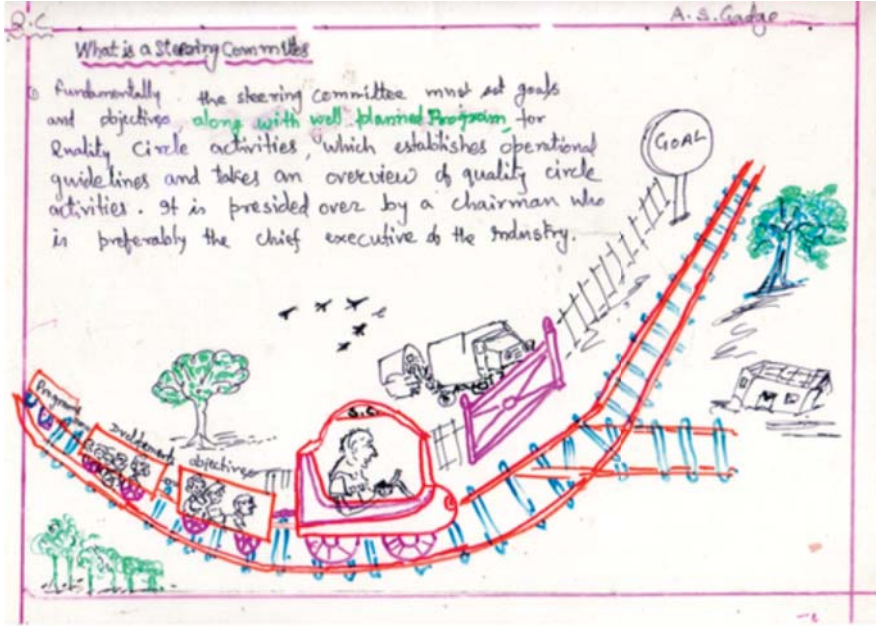 Q.C
A. S. Gadge
What is a Steering Committee
① Fundamentally the steering committee must set goals
and objectives along with well planned Program, for
Quality Circle activities, which establishes operational
guidelines and takes an overview of quality circle
activities. It is presided over by a chairman who
is preferably the chief executive of the Industry.
GOAL
S.C.
objectives